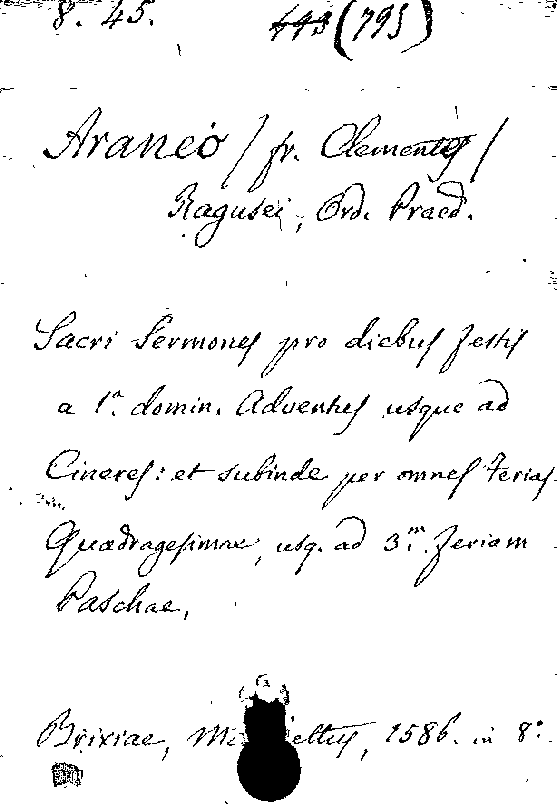 8. 45. 443 (795)
Araneo / fr. Clementis /
Ragusei, Ord. Praed.
Sacri Sermones pro diebus festis
a 1ª. domin. Adventus usque ad
Cineres: et subinde per omnes Ferias
Quadragesimae, usq. ad 3.m feriam
Paschae,
Brixiae, 1586. in 8º.